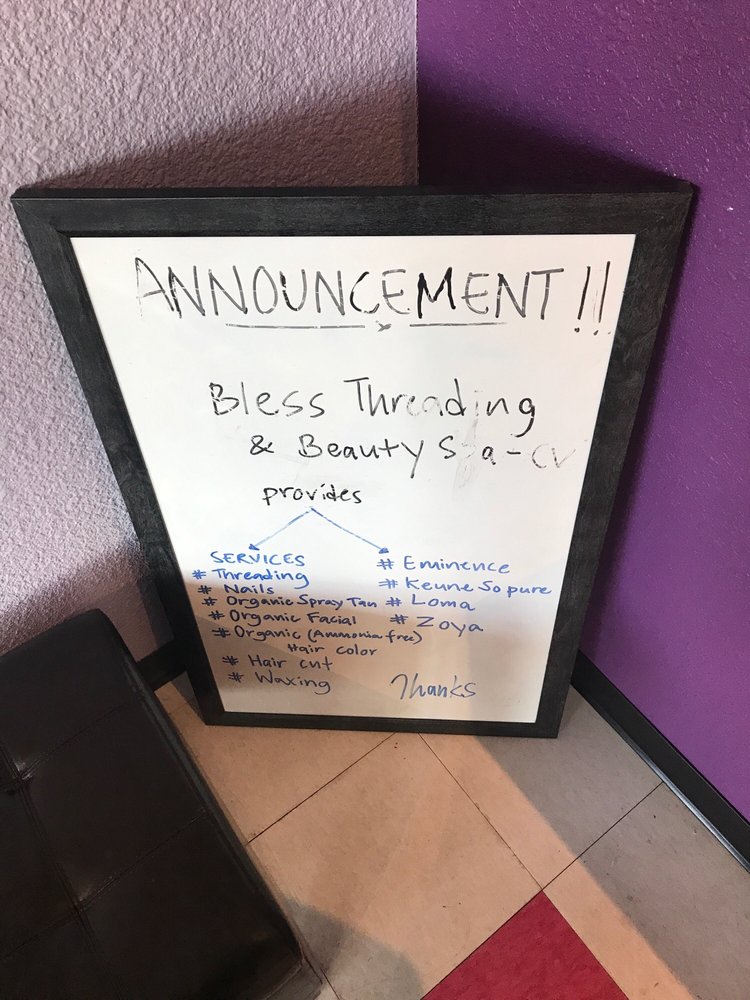 ANNOUNCEMENT!!
Bless Threading
& Beauty Spa-CV
provides
SERVICES
# Threading
# Nails
# Organic Spray Tan
# Organic Facial
# Organic (Ammonia free)
Hair color
# Hair cut
# Waxing
# Eminence
# Keune So pure
# Loma
# Zoya
Thanks